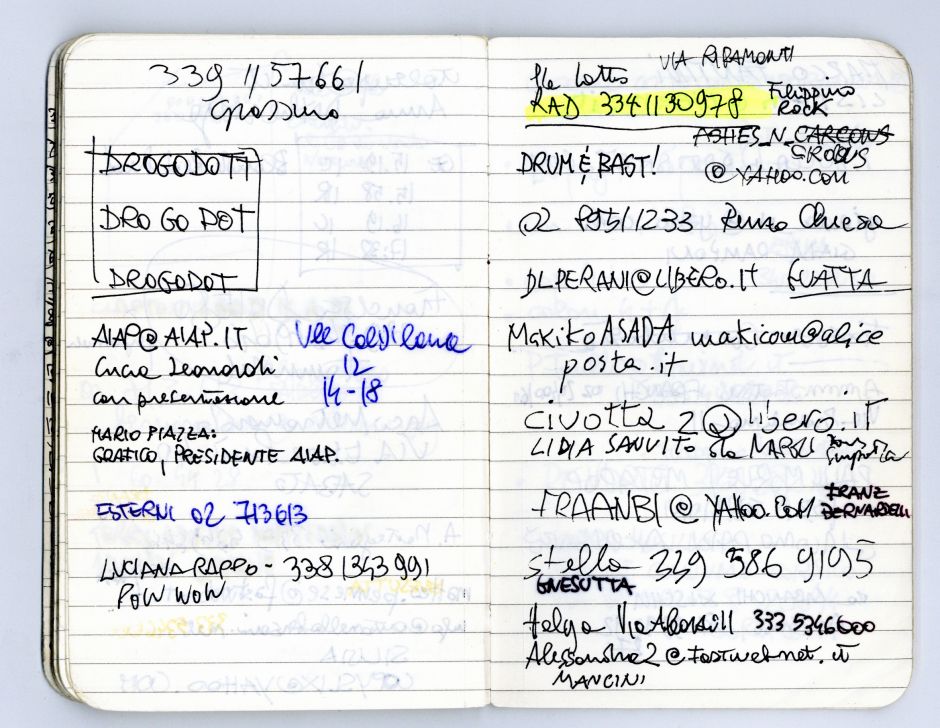 339 1157661
Grossino
DROGODOTT
DROGODOT
DROGODOT
AIAP@AIAP.IT
Lucia Leonardi
con precettazione
Vle Col Di Lana
12
14-18
MARIO PIAZZA:
GRAFICO, PRESIDENTE AIAP.
ESTERNI 02 713613
LUCIANA RAPPO - 338 1343 991
POW WOW
VIA RIPAMONTI
RAD 334 1130978
Filippino
ROCK
ASHES_N_CARCOUS
GROBUS
@YAHOO.COM
DRUM & BAST!
02 89511233 Renzo Chiesa
DLPERANI@LIBERO.IT GUATTA
Makiko ASADA makicom@alice
posta.it
civotta2@libero.it
LIDIA SANVITO sta NAPOLI
FRAANBI@YAHOO.COM FRANZ
BERNARDELLI
Stella 339 586 9195
GNESUTTA
Helga Via 333 5346600
Alessandra2@fastwebnet.it
MANCINI